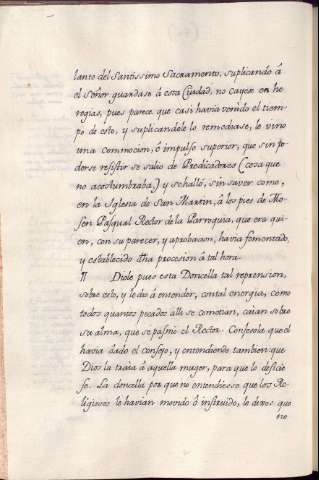 lante del Santissimo Sacramento, suplicando á
el Señor guardase á esta Ciudad, no cayese en he
regias, pues parece que casi havia venido el tiem-
po de esto, y suplicandole lo remediase, le vino
una commocion, ó impulso superior, que sin po
derse resistir se salio de Predicadores (cosa que
no acostumbraba,) y se halló, sin saver como,
en la Iglesia de San Martin, á los pies de Mo-
sen Pasqual Rector de la Parroquia, que era qui-
en, con su parecer, y aprobacion, havia fomentado,
y establecido dha procesion á tal hora.
¶ Diole pues esta Doncella tal reprension,
sobre esto, y le dió á entender, con tal energia, como
todos quantos pecados alli se cometian, caian sobre
su alma, que se pasmó el Rector. Confesole que el
havia dado el consejo, y entendiendo tambien que
Dios la traia á aquella muger, para que lo deshicie
se. La doncella por que no entendiesse que los Re-
ligiosos le havian movido ó instruido, le dixo: que
no